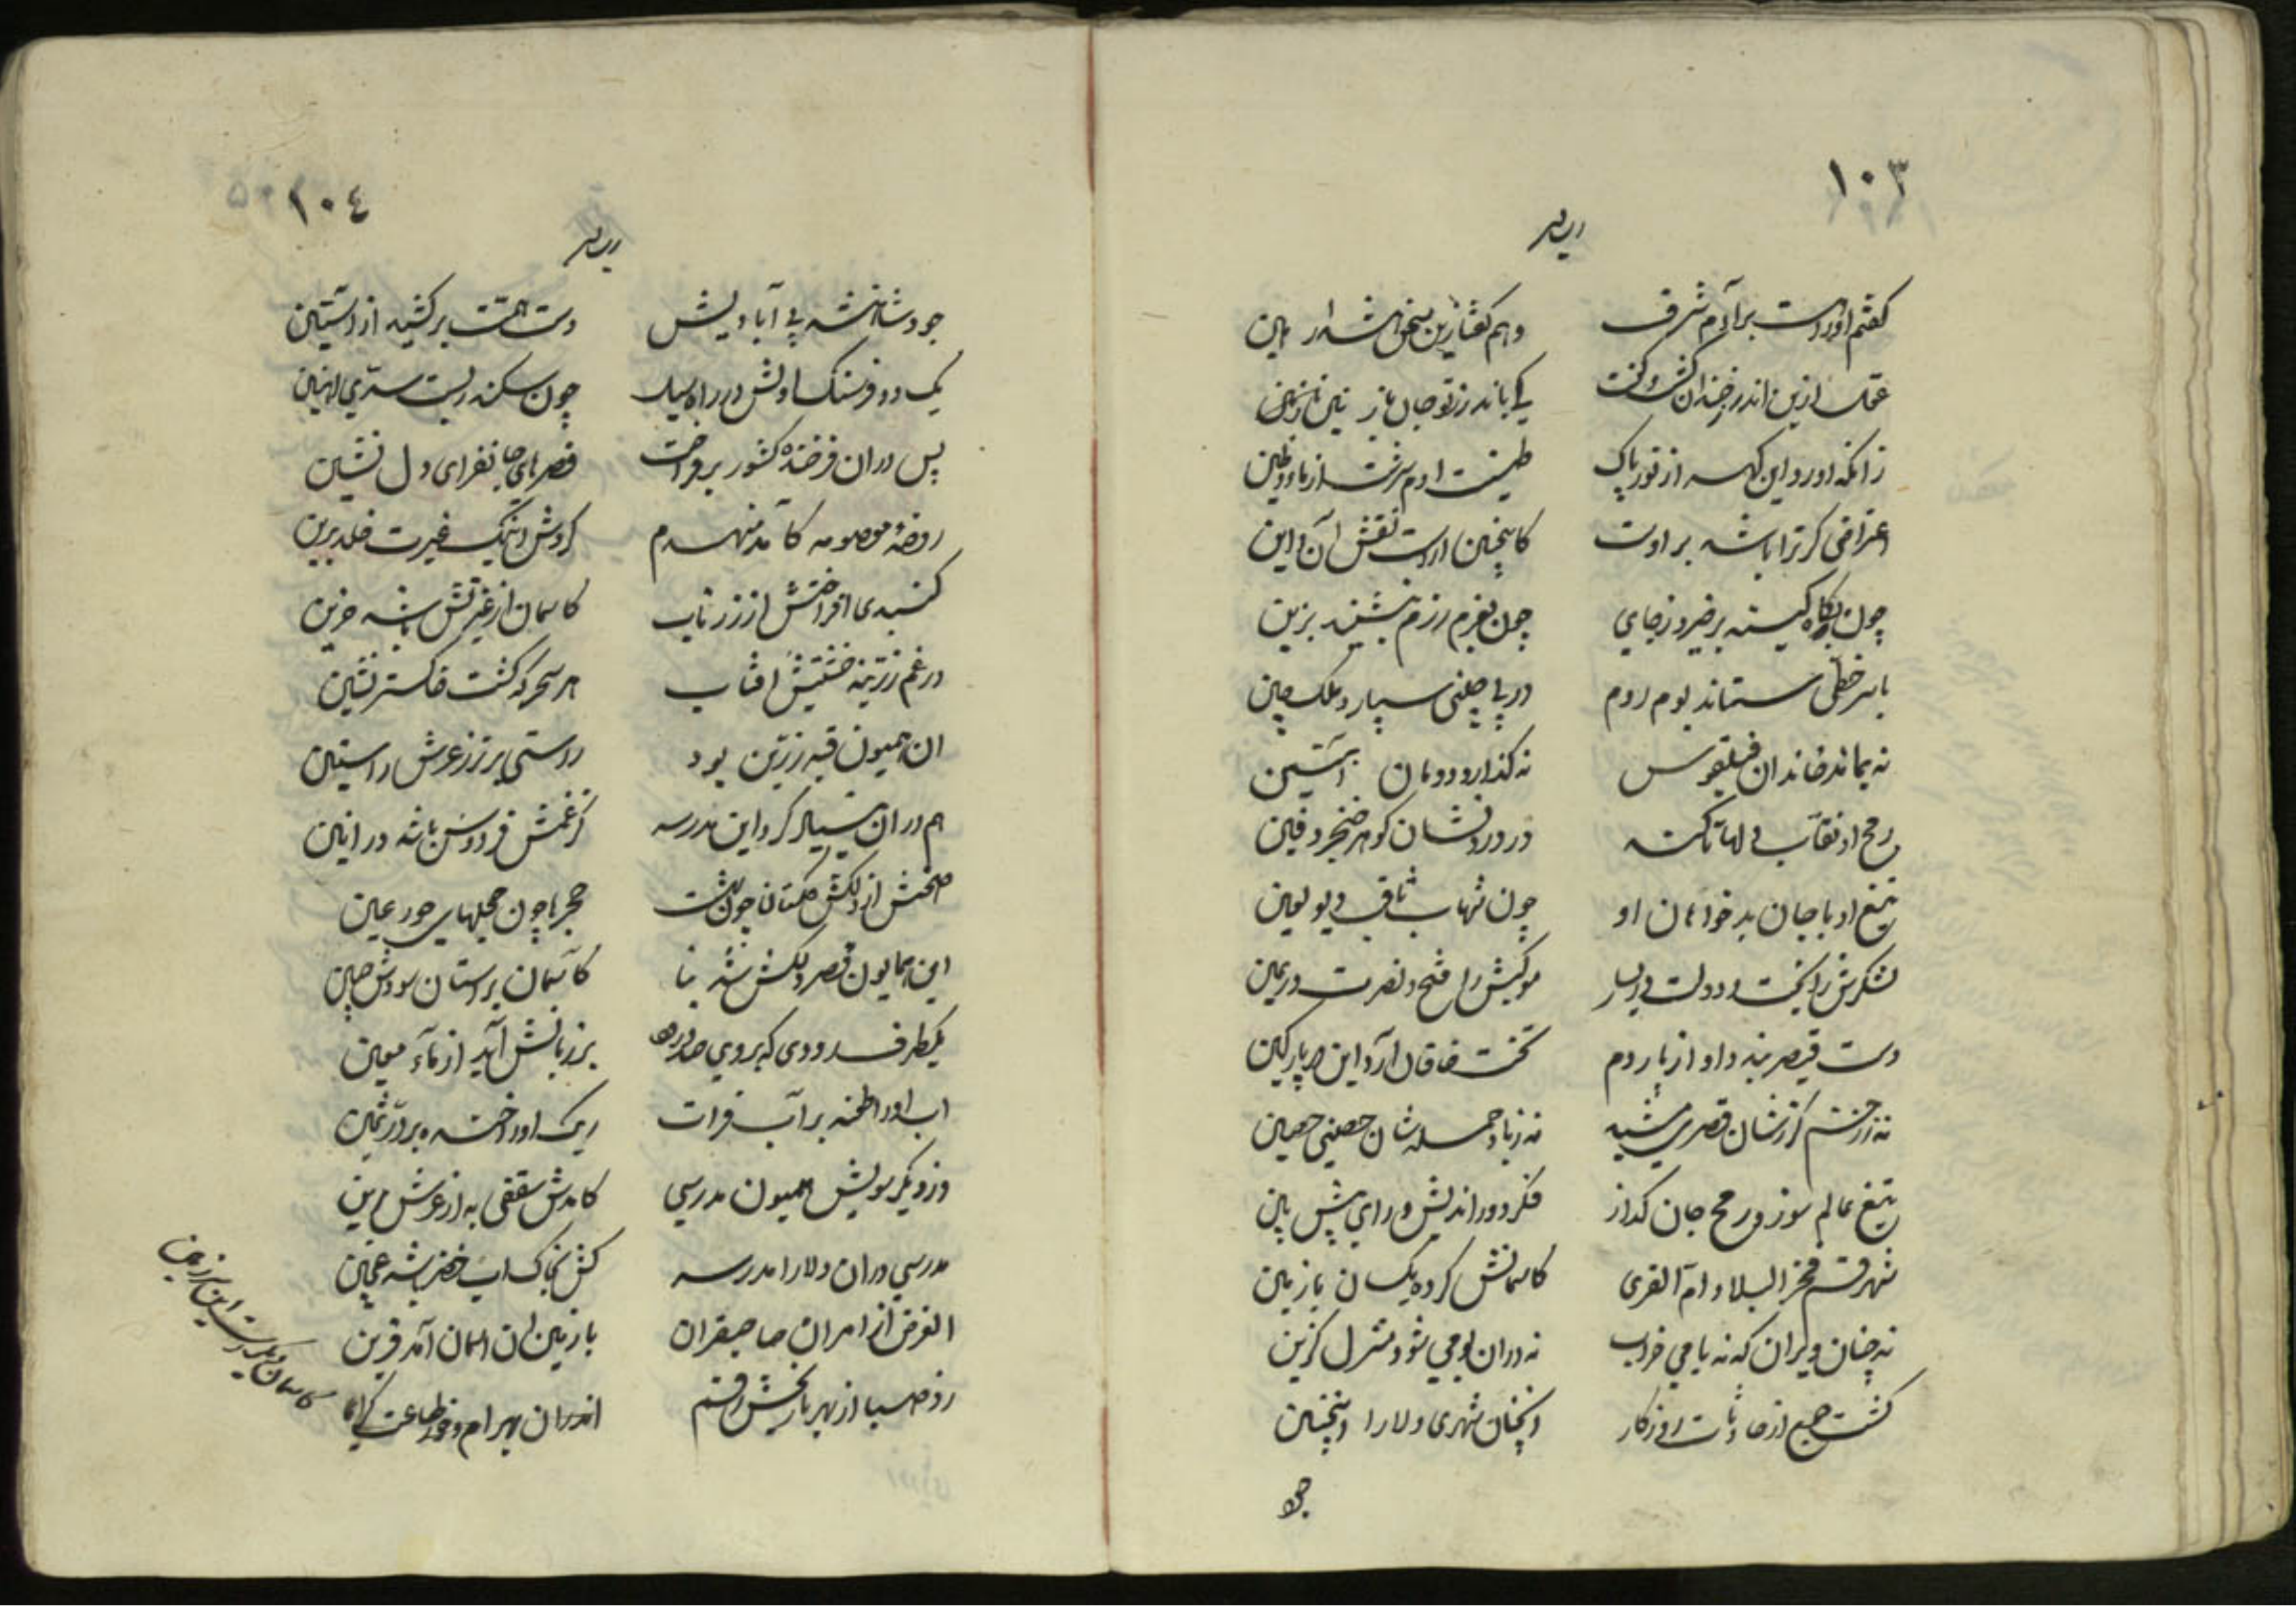 ١٠٣
گفتم او را هست بر آدم شرف وهم گفتا زین سخن شد
عقل ازین اندر خندان گشت و گفت
زانکه اورد این گهر از نور پاک طینت ادم سرشت از ماء و طین
اعتراضی گر ترا باشد بر اوت کاینچنین اراست نقش آن و این
چون بگاه کینه برخیزد ز جای چون بعزم رزم بنشیند بزین
با سر خطی ستاند بوم روم در پی چینی سپارد ملک چین
نه بماند خاندان فیلقوس نه گذارد دودمان آبتین
رمح او
تیغ او با جان بدخواهان او چون شهاب ثاقب و دیو لعین
لشکرش را بخت و دولت در یسار موکبش را فتح و نصرت در یمین
دست قیصر بندد او از پار دم تخت خاقان آرد این در پارکین
نه ز زخم گرزشان قصری مشید نه ز باد حمله شان حصنی حصین
تیغ عالم سوز و رمح جان گداز فکر دور اندیش و رای پیش بین
شهر قم فخر البلاد و ام القری کاسمانش کرده یکسان با زمین
نه چنان ویران که نه بامی خراب نه در ان بومی شود منزل گزین
گشت جمع از حادثات روزگار انچنان شهری دلارا اینچنین
جود
١٠٤
جود شاهنشه پی آبادیش دست همت برکشید از آستین
یک دو فرسنگ اولش در راه سیل چون سکندر بست سدی اهنین
پس در ان فرخنده کشور برفراخت قصرهای جانفزای دل نشین
روضهٔ معصومه کامد منهدم کردش اینک غیرت خلد برین
گنبدی افراختش از زر ناب کاسمان از غیرتش باشد حزین
در غم زرینه خشتش افتاب هر سحرگه گشت خاکستر نشین
ان همیون قبهٔ زرین بود راستی برتر ز عرش راستین
هم در ان بنیاد کرد این مدرسه کز غمش فردوس باشد در انین
صحنش از دلکش گلستانها چون بهشت حجرها چون حجلهای حور عین
این همایون قصر دلکش شد بنا کآسمان بر استان سودش جبین
یکطرف رودی که بر روی بر زبانش آید از مآء معین
اب او را طعنه بر آب فرات ریگ او را خنده بر در ثمین
وز دیگر سویش همیون مدرسی کامدش سقفی به از عرش برین
مدرسی در ان دلارا مدرسه کش بخاک اب خضر شد عجین
الغرض از امر ان صاحبقران با زمین ان اسمان آمد قرین
زد صبا از بهر تاریخش رقم اندر ان بهرام
کاسمان دیگر است این سرزمین